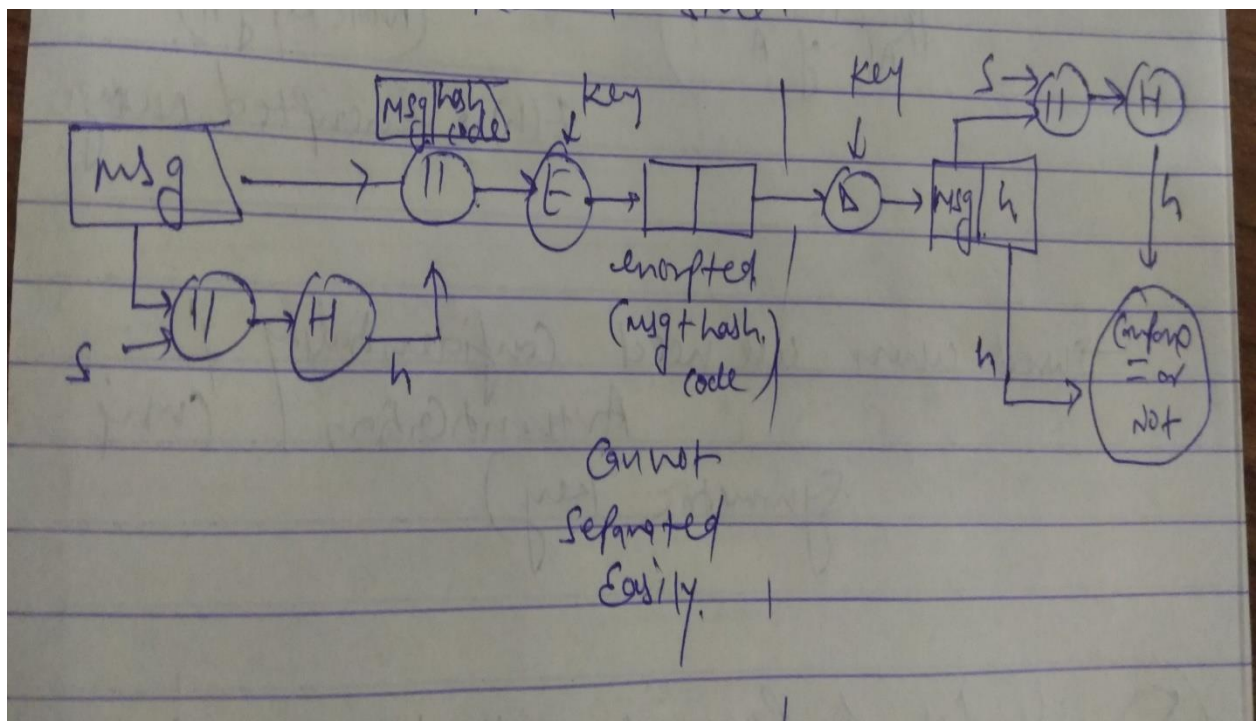 msg
msg hash
code
||
key
E
encrypted
(msg + hash
code)
Cannot
Separated
Easily.
S
||
H
h
key
D
msg h
S
||
H
h
h
= or
Not